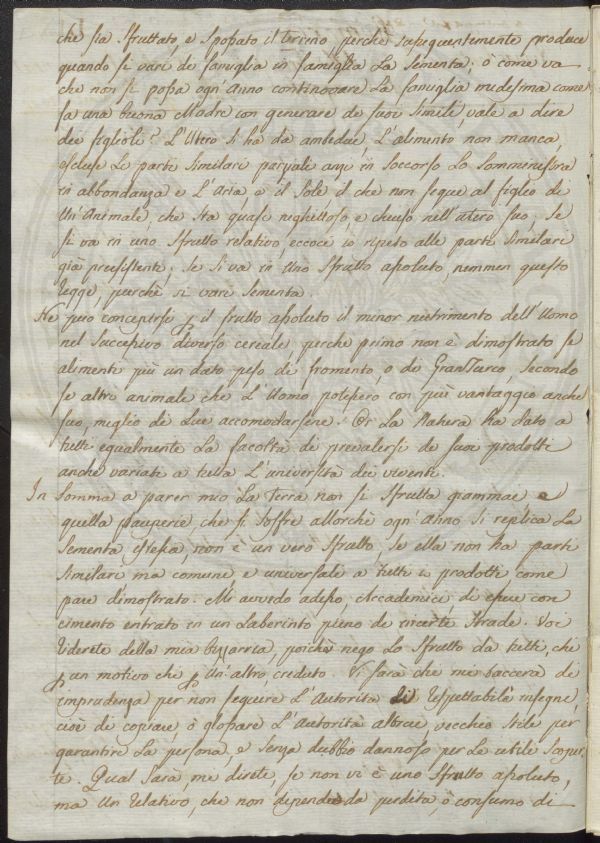 che sia sfruttato, e spossato il terreno perche susseguentemente produce
quando si vari di famiglia in famiglia La Sementa; ò come va
che non si possa ogn'anno continovare La famiglia medesima come
fa una buona Madre con generare de suoi simili, vale a dire
dei figlioli? L'Utero si ha da ambedue L'alimento non manca,
escluse Le parti Similari parziali anzi in Soccorso Lo Somministra
in abbondanza e L'Aria, e il Sole il che non segue al figlio di
Un'Animale, che sta quasi neghittoso, e chiuso nell'utero suo, Se
si va in uno sfrutto relativo eccoci io ripeto alle parti Similari
già preesistenti; Se si va in Uno Sfrutto assoluto, nemmen questo
regge, purchè si vari Sementa.
Ne può concepirsi p il frutto assoluto il minor nutrimento dell'Uomo
nel successivo diverso cereale, perche primo non è dimostrato se
alimenti più un dato peso di fromento, o di GranTurco, Secondo
se altro animale che L'Uomo potessero con più vantaggio anche
suo, meglio di Lui accomodarsene. Or La Natura ha dato a
tutti egualmente La facoltà di prevalersi de suoi prodotti
anche variati a tutta L'università dei viventi.
In Somma a parer mio La Terra non si Sfrutta giammai e
quella pauperie, che si soffre allorchè ogn'anno si replica La
Sementa istessa, non è un vero Sfrutto, Se ella non ha parti
Similari ma comune, e universale a tutti i prodotti, come
pare dimostrato. Mi avvedo adesso, Accademici, di essere con
cimento entrato in un Laberinto pieno di incerte strade. Voi
riderete della mia bizzarria, poichè nego Lo Sfrutto da tutti, chi
p un motivo chi p Un'altro creduto. Vi sarà chi mi taccerà di
imprudenza per non seguire L'Autorità di rispettabili insegne,
cioè di copiare, ò glosare L'Autorità altrui vecchio stile per
garantire La persona, e senza dubbio dannoso per Le utili scoper-
te. Qual sarà, me direte, se non vi è uno Sfrutto assoluto,
ma Un relativo, che non dipende da perdita, ò consumo di